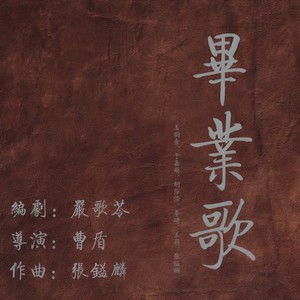 畢業歌
編劇：嚴歌苓
導演：曹盾
作曲：張鎰麟